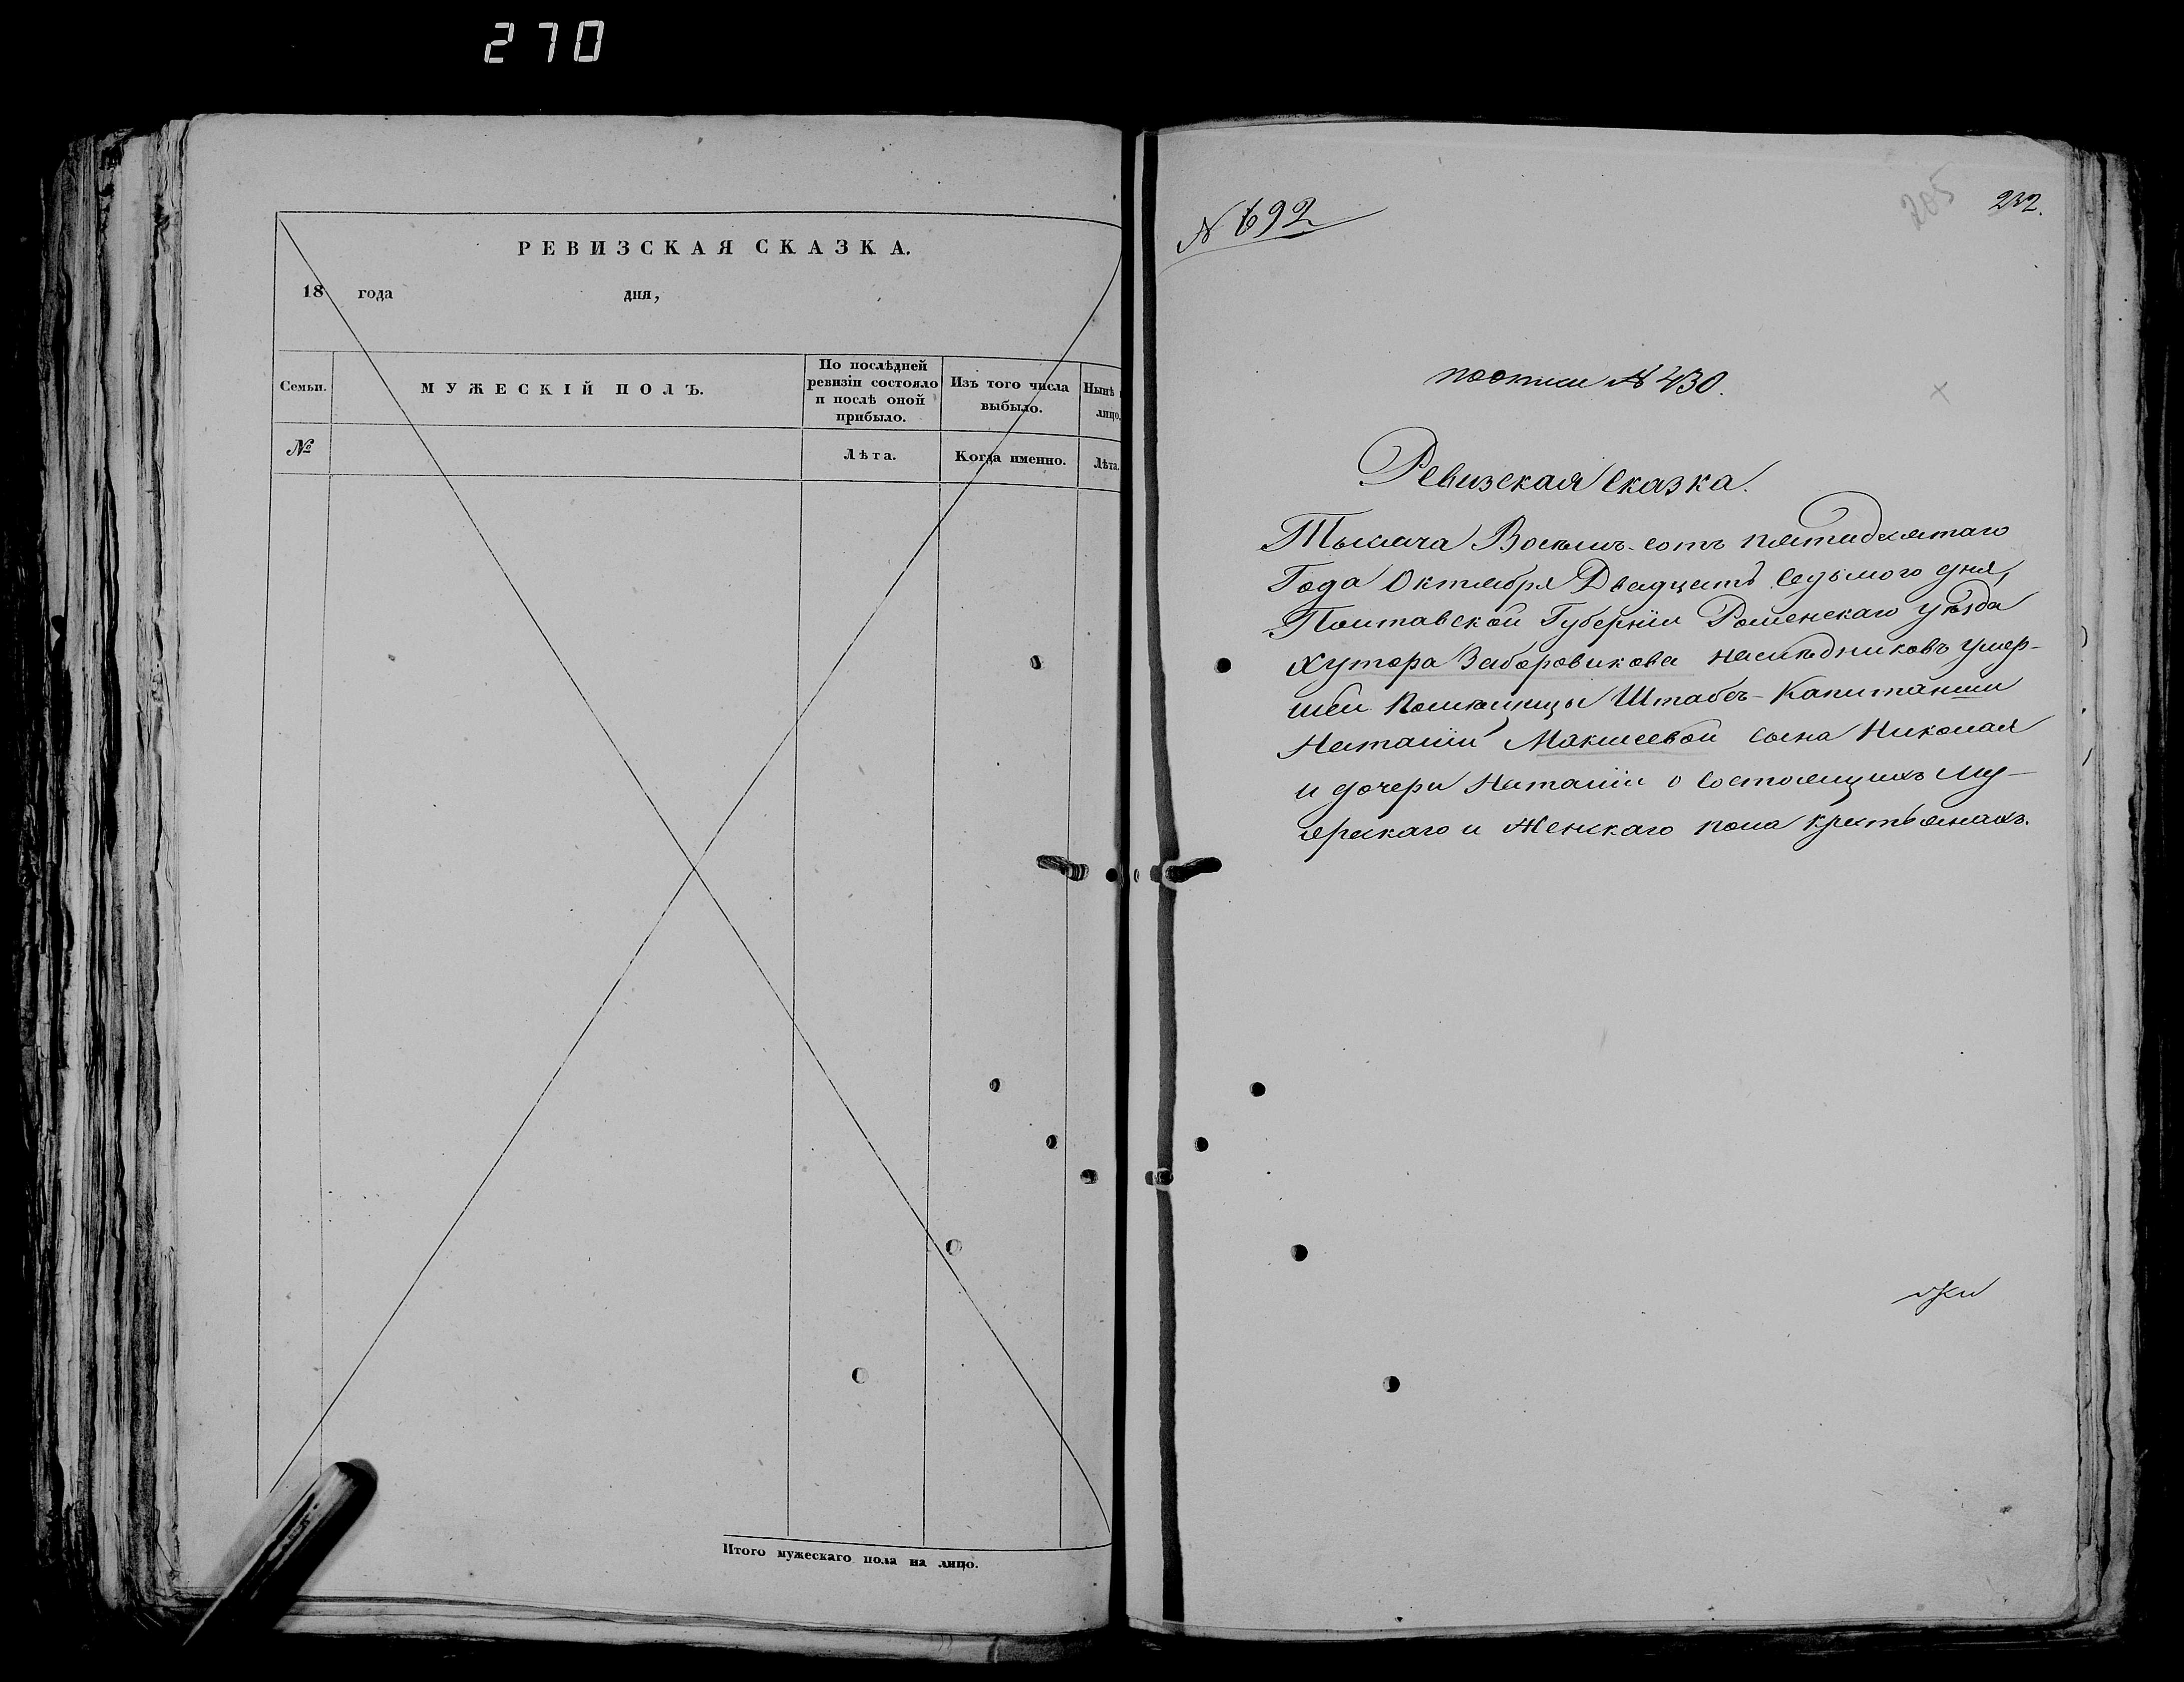 270
РЕВИЗСКАЯ СКАЗКА.
18 года дня,
Семьи.
МУЖЕСКІЙ ПОЛЪ.
По послѣдней
ревизіи состояло
и послѣ оной
прибыло.
Изъ того числа
выбыло.
Нынѣ
лицо.
№
Лѣта.
Когда именно.
Лѣта.
Итого мужескаго пола на лицо.
№ 692
205
232.
поописи № 430.
Ревизская Сказка.
Тысяча Восемь-сотъ пятидесятаго
Года Октября Двадцать Седьмого дня,
Полтавской Губерніи Роменскаго уѣзда
Хутора Заборовикова наслѣдниковъ умер-
шей Помѣщицы Штабсъ-Капитанши
Наталіи Макшеевой сына Николая
и дочери Наталіи о состоящихъ му-
жескаго и Женскаго пола крестьянахъ.